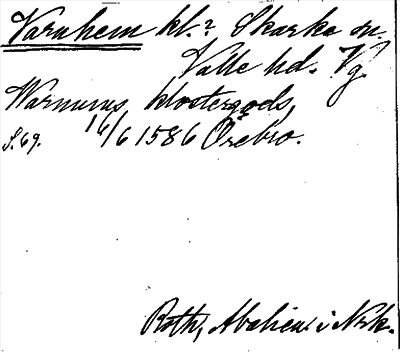 Varnhem kl.? Skarke sn.
Valle hd. Vg.
Warnums klostergods,
S. 69. 16/6 1586 Örebro.
Roth, i Nrk.